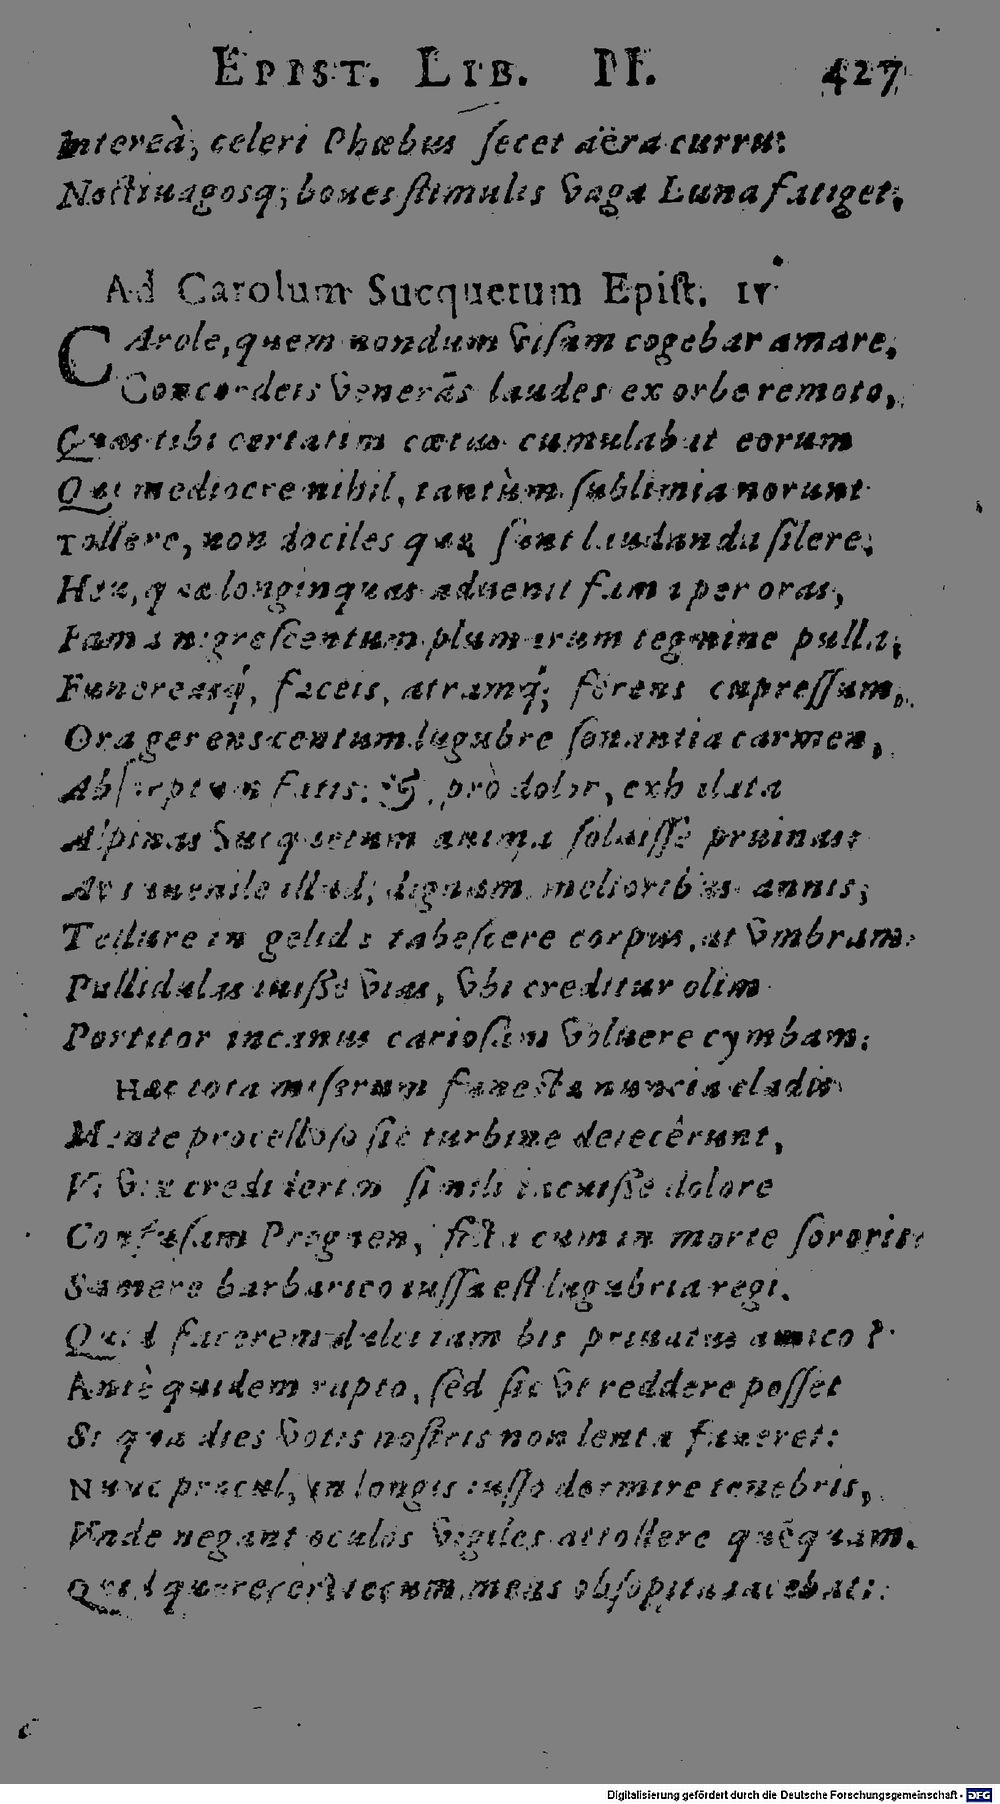 EPIST. LIB. II. 427
Intereà, celeri Phœbus ſecet aëra curru:
Noctiuagosq; boues ſtimulis vaga Luna fatiget.
Ad Carolum Sucquetum Epiſt. IV
CArole, quem nondum viſum cogebar amare,
Concordeis venerãs laudes ex orbe remoto,
Quas tibi certatim cœtus cumulabat eorum
Qui mediocre nihil, tantùm ſublimia norunt
Tollere, non dociles quæ ſunt laudanda ſilere:
Heu, quæ longinquas aduenit fama per oras,
Fama nigreſcentum plumarum tegmine pulla,
Funereasq́, faceis, atramq́; ferens cupreſſum,
Ora gerens centum lugubre ſonantia carmen,
Abſorptum fatis: &, prò dolor, exhalata
Alpinas Sucquetum anima ſoluiſſe pruinas:
Ac iuuenile illud, dignum melioribus annis,
Tellure in gelida tabeſcere corpus, at vmbram
Pallidulas iniſſe vias, vbi creditur olim
Portitor incanus carioſam voluere cymbam:
Hæc tota miſerum funeſta nuncia cladis
Mente procelloſo ſic turbine deiecêrunt,
Vt vix crediderim ſimili incuiſſe dolore
Confuſam Prognen, ficta cum in morte ſororis
Sumere barbarico iuſſa eſt lugubria regi.
Quid facerem dulci iam bis priuatus amico?
Antè quidem rapto, ſed ſic vt reddere poſſet
Si qua dies votis noſtris non lenta faueret:
Nunc procul, in longis iuſſo dormire tenebris,
Vnde negant oculos vigiles attollere quẽquam.
Quid quererer? tecum mens obſopita iacebat:
Digitalisierung gefördert durch die Deutsche Forschungsgemeinschaft - DFG